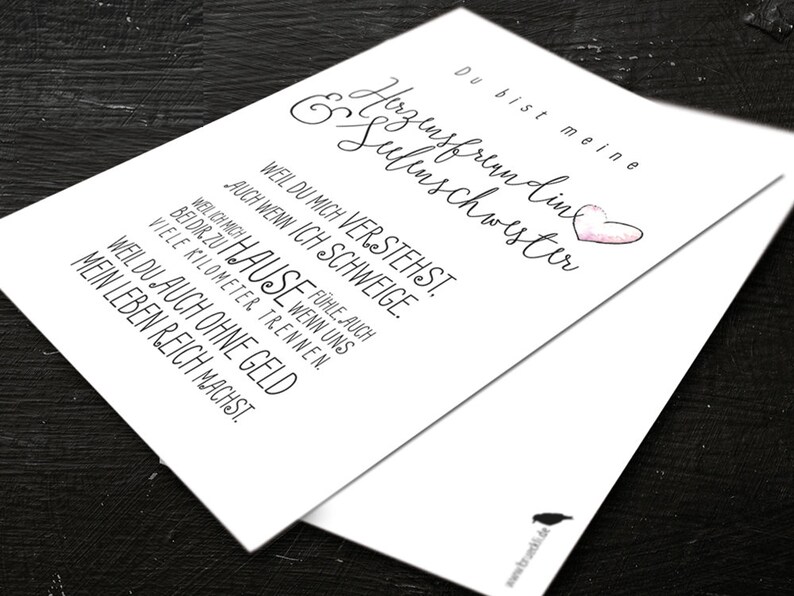 Du bist meine
Herzensfreundin
& Seelenschwester
WEIL DU MICH VERSTEHST,
AUCH WENN ICH SCHWEIGE.
WEIL ICH MICH
BEI DIR ZU HAUSE FÜHLE, AUCH
WENN UNS
VIELE KILOMETER TRENNEN.
WEIL DU AUCH OHNE GELD
MEIN LEBEN REICH MACHST.
www.brueckli.de